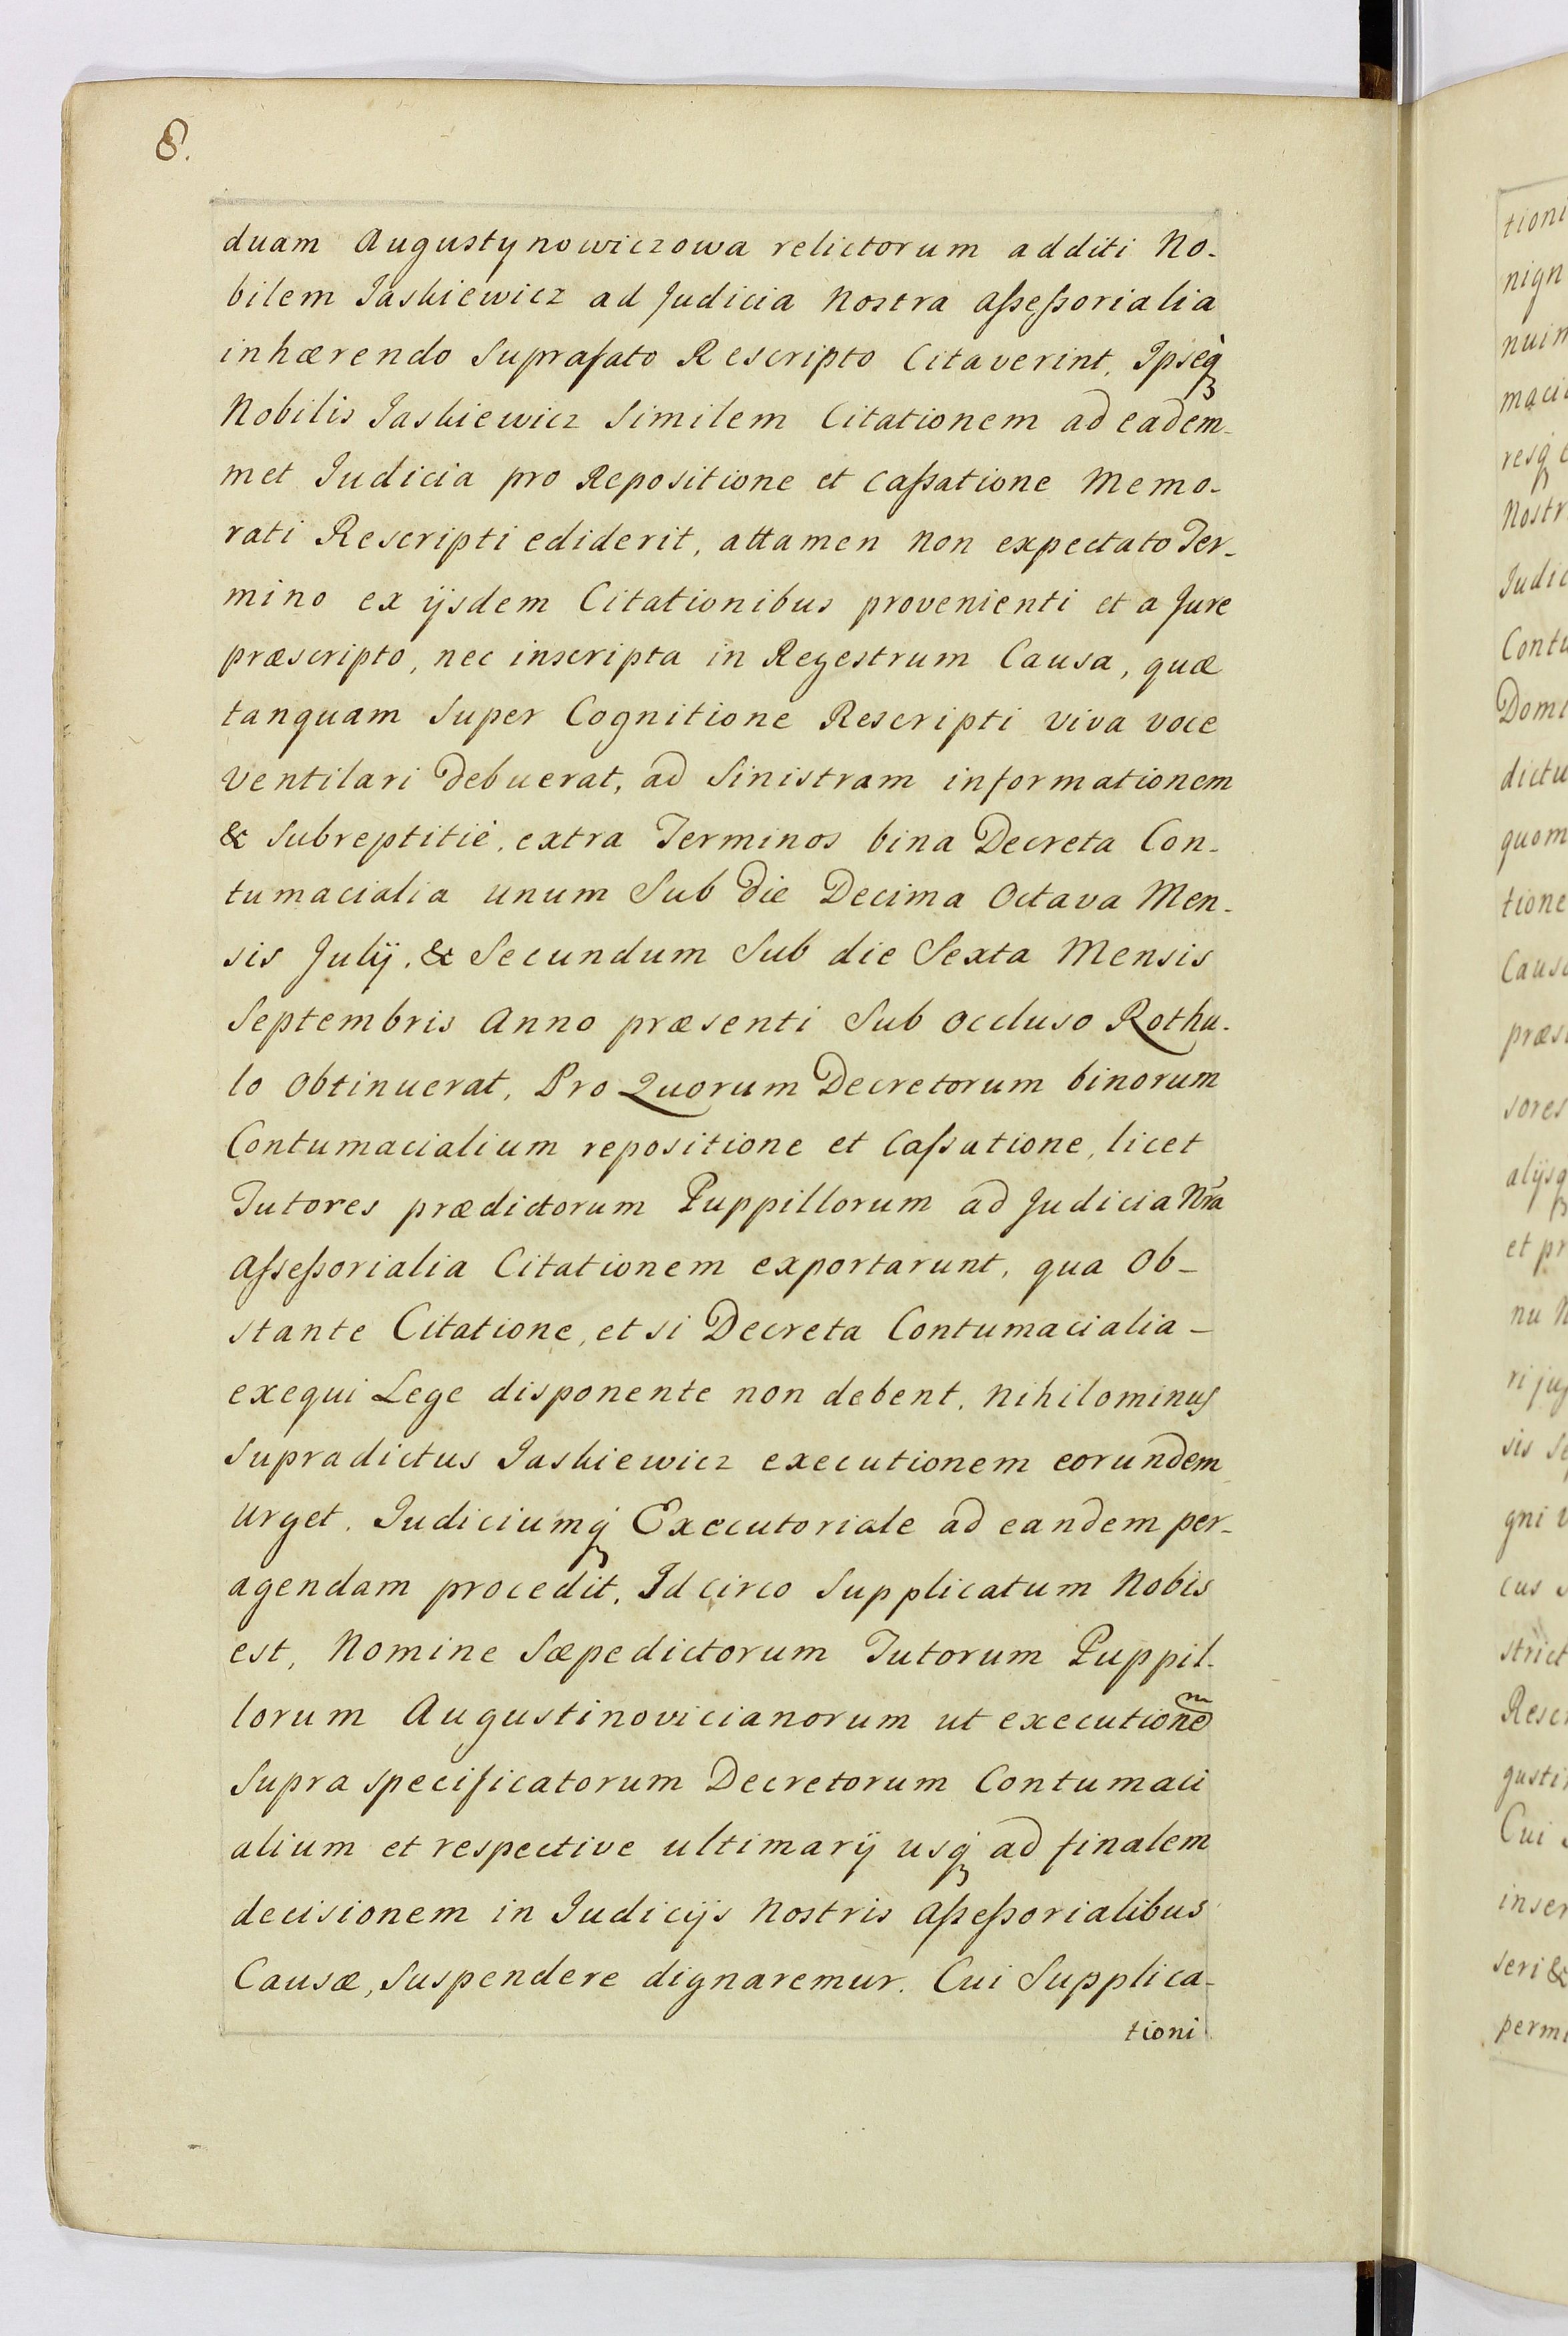 8.
duam Augustynowiczowa relictorum additi No-
bilem Jaskiewicz ad Judicia Nostra Assessorialia
inhærendo Suprafato Rescripto Citaverint, Ipseq
Nobilis Jaskiewicz Similem Citationem ad eadem-
met Judicia pro Repositione et Cassatione Memo-
rati Rescripti ediderit, attamen non expectato Ter-
mino ex ijsdem Citationibus provenienti et a Jure
præscripto, nec inscripta in Regestrum Causa, quæ
tanquam Super Cognitione Rescripti viva voce
Ventilari debuerat, ad Sinistram informationem
& Subreptitiè, extra Terminos bina Decreta Con-
tumacialia unum Sub die Decima Octava Men-
sis Julÿ, & Secundum Sub die Sexta Mensis
Septembris Anno præsenti Sub occluso Rothu-
lo obtinuerat, Pro Quorum Decretorum binorum
Contumacialium repositione et Cassatione, licet
Tutores prædictorum Puppillorum ad Judicia Nra
Assessorialia Citationem exportarunt, qua Ob-
stante Citatione, et si Decreta Contumacialia -
exequi Lege disponente non debent, nihilominus
Supradictus Jaskiewicz executionem eorundem
urget, Judiciumq Executoriale ad eandem per-
agendam procedit, Idcirco Supplicatum Nobis
est, Nomine Sæpedictorum Tutorum Puppil-
lorum Augustinovicianorum ut executionem
Supra specificatorum Decretorum Contumaci
alium et respective ultimarÿ usq ad finalem
decisionem in Judicÿs Nostris Assessorialibus
Causæ, Suspendere dignaremur. Cui Supplica-
tioni
tioni
nign
nuin
resq
Nostr
Judic
Contu
Domi
dictu
quom
tione
Causa
præs
sores
alijsq
et pr
sis Se
gni v
cus
strict
Rescr
gusti
Cui
inser
seri &
permi